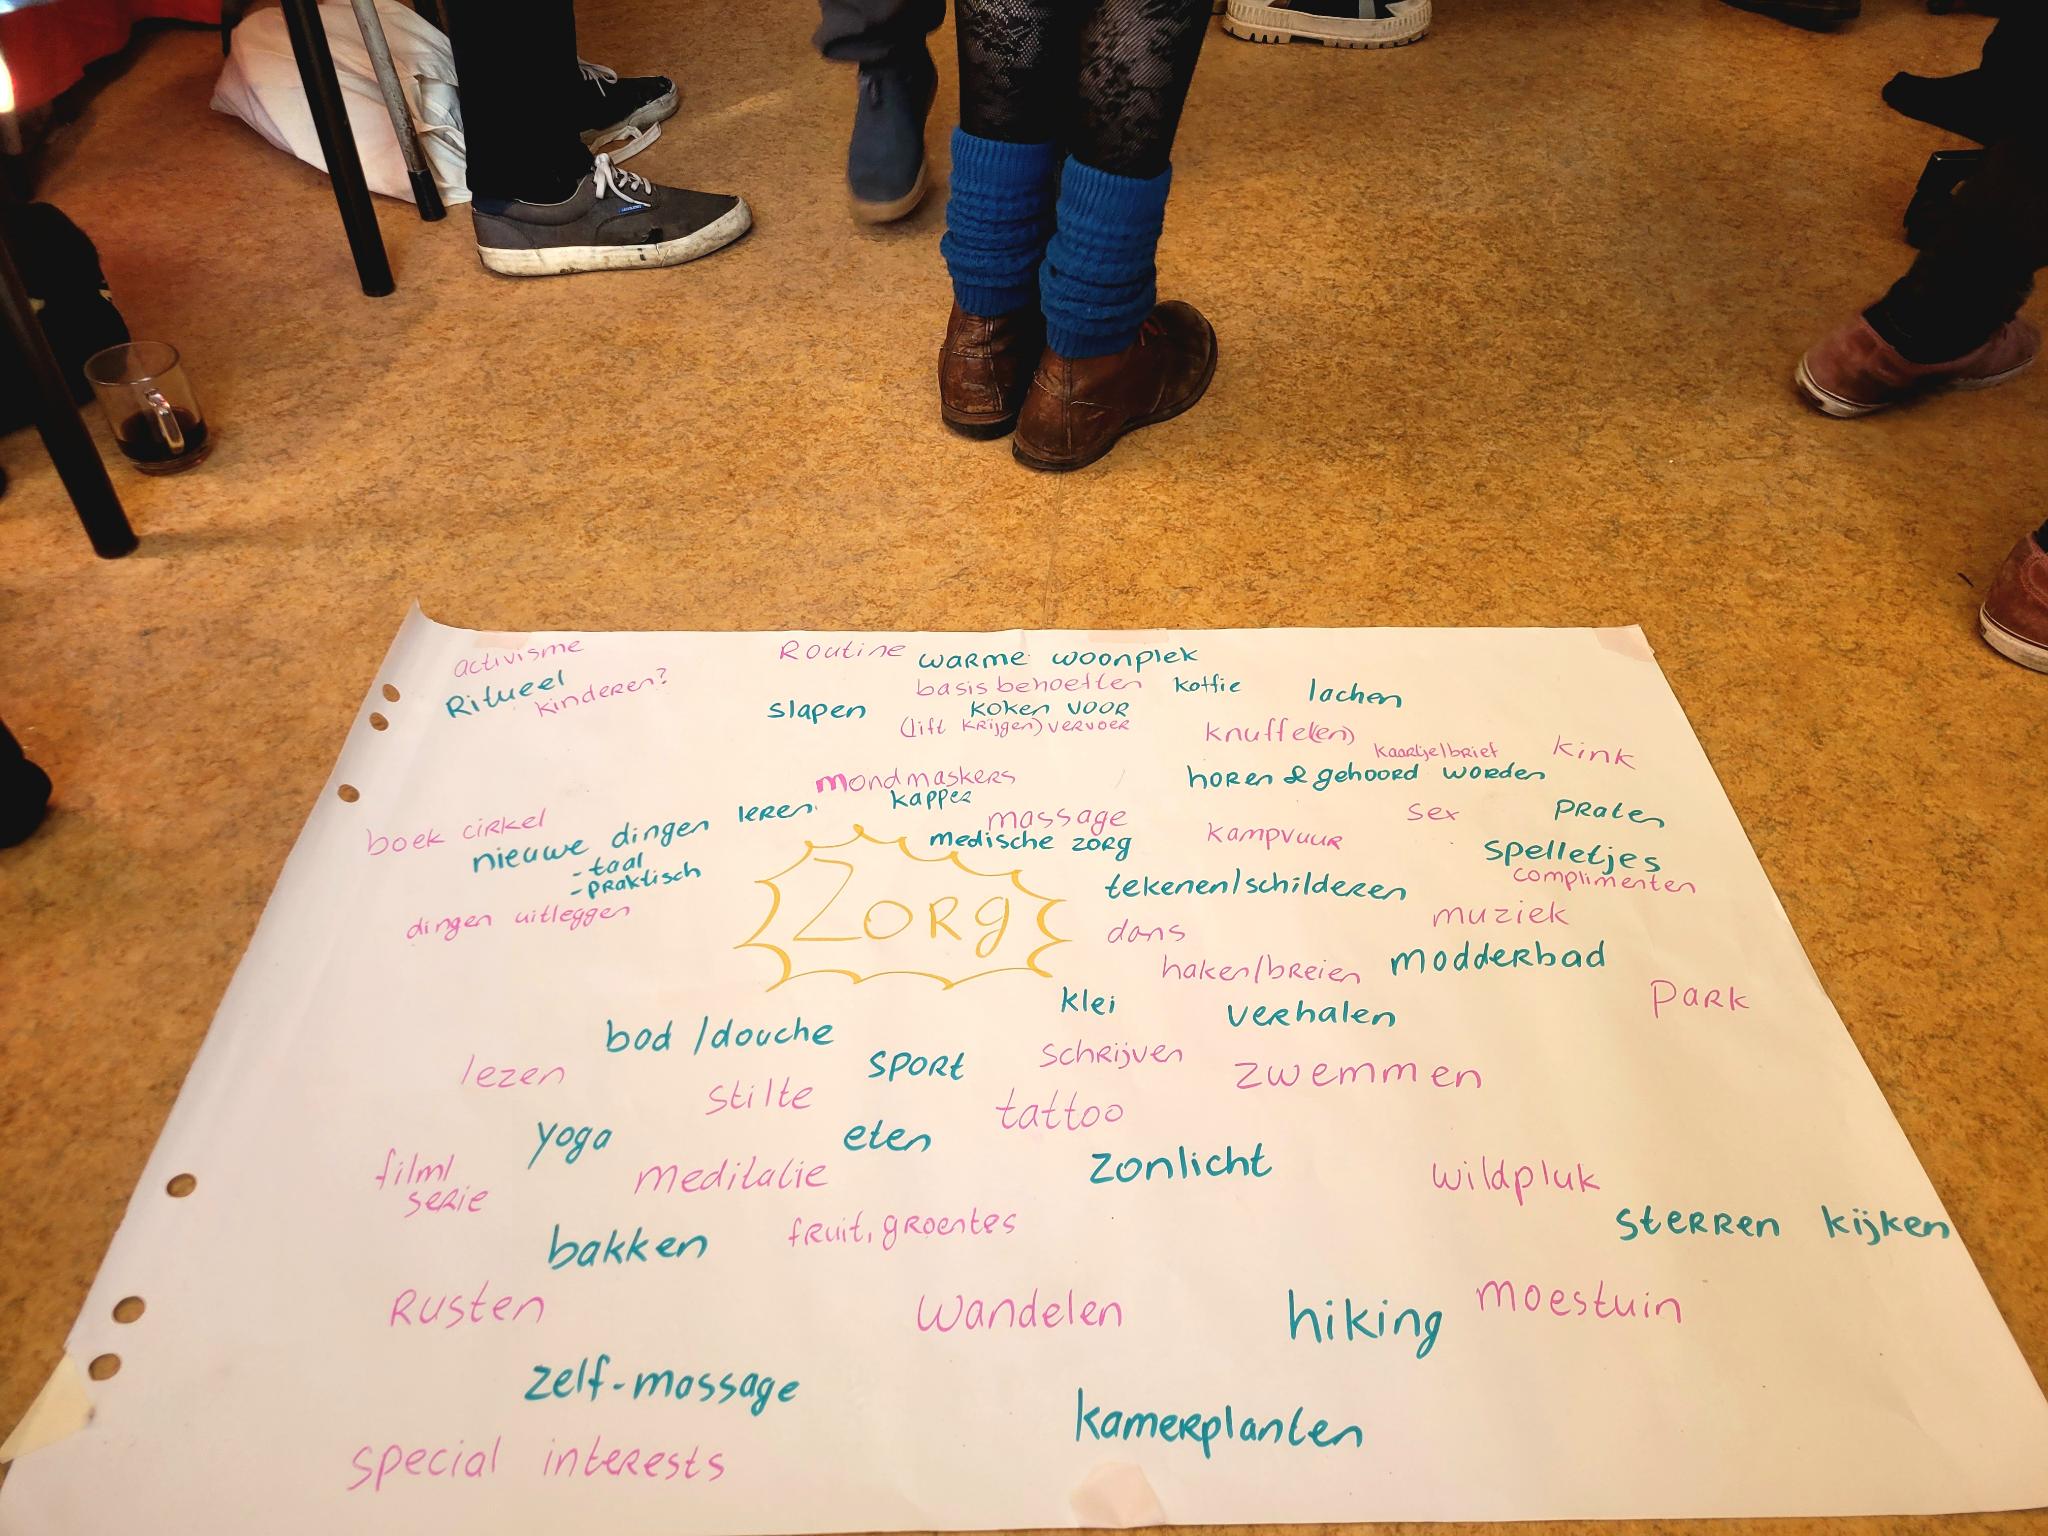 activisme
Ritueel
kinderen?
Routine
warme woonplek
basis behoeften
koffie
lachen
slapen
koken voor
(lift krijgen) vervoer
knuffel(en)
kaartje/brief
kink
mondmaskers
horen & gehoord worden
kapper
leren
massage
sex
praten
boek cirkel
nieuwe dingen
- taal
- praktisch
medische zorg
kampvuur
spelletjes
complimenten
dingen uitleggen
Zorg
tekenen/schilderen
muziek
dans
haken/breien
modderbad
park
klei
verhalen
bad /douche
sport
schrijven
zwemmen
lezen
stilte
tattoo
yoga
eten
zonlicht
film/
serie
meditatie
wildpluk
sterren kijken
bakken
fruit, groentes
Rusten
wandelen
hiking
moestuin
zelf-massage
kamerplanten
special interests